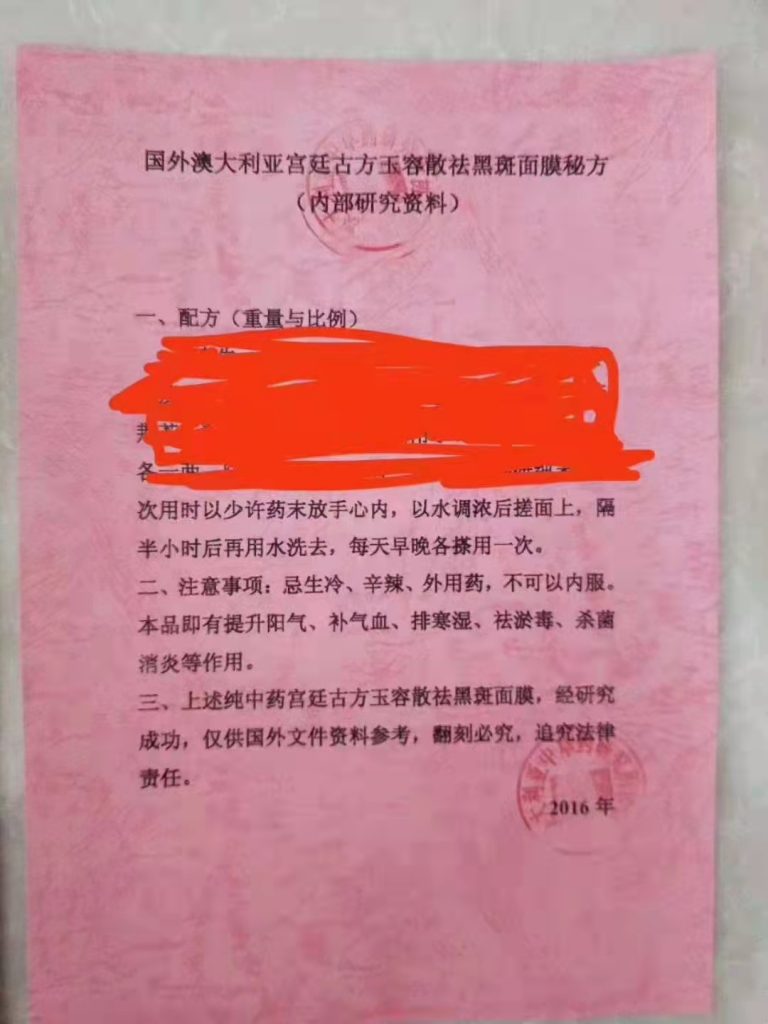 国外澳大利亚宫廷古方玉容散祛黑斑面膜秘方
（内部研究资料）
一、配方（重量与比例）
各一两
次用时以少许药末放手心内，以水调浓后搓面上，隔
半小时后再用水洗去，每天早晚各搽用一次。
二、注意事项：忌生冷、辛辣、外用药，不可以内服。
本品即有提升阳气、补气血、排寒湿、祛淤毒、杀菌
消炎等作用。
三、上述纯中药宫廷古方玉容散祛黑斑面膜，经研究
成功，仅供国外文件资料参考，翻刻必究，追究法律
责任。
2016 年